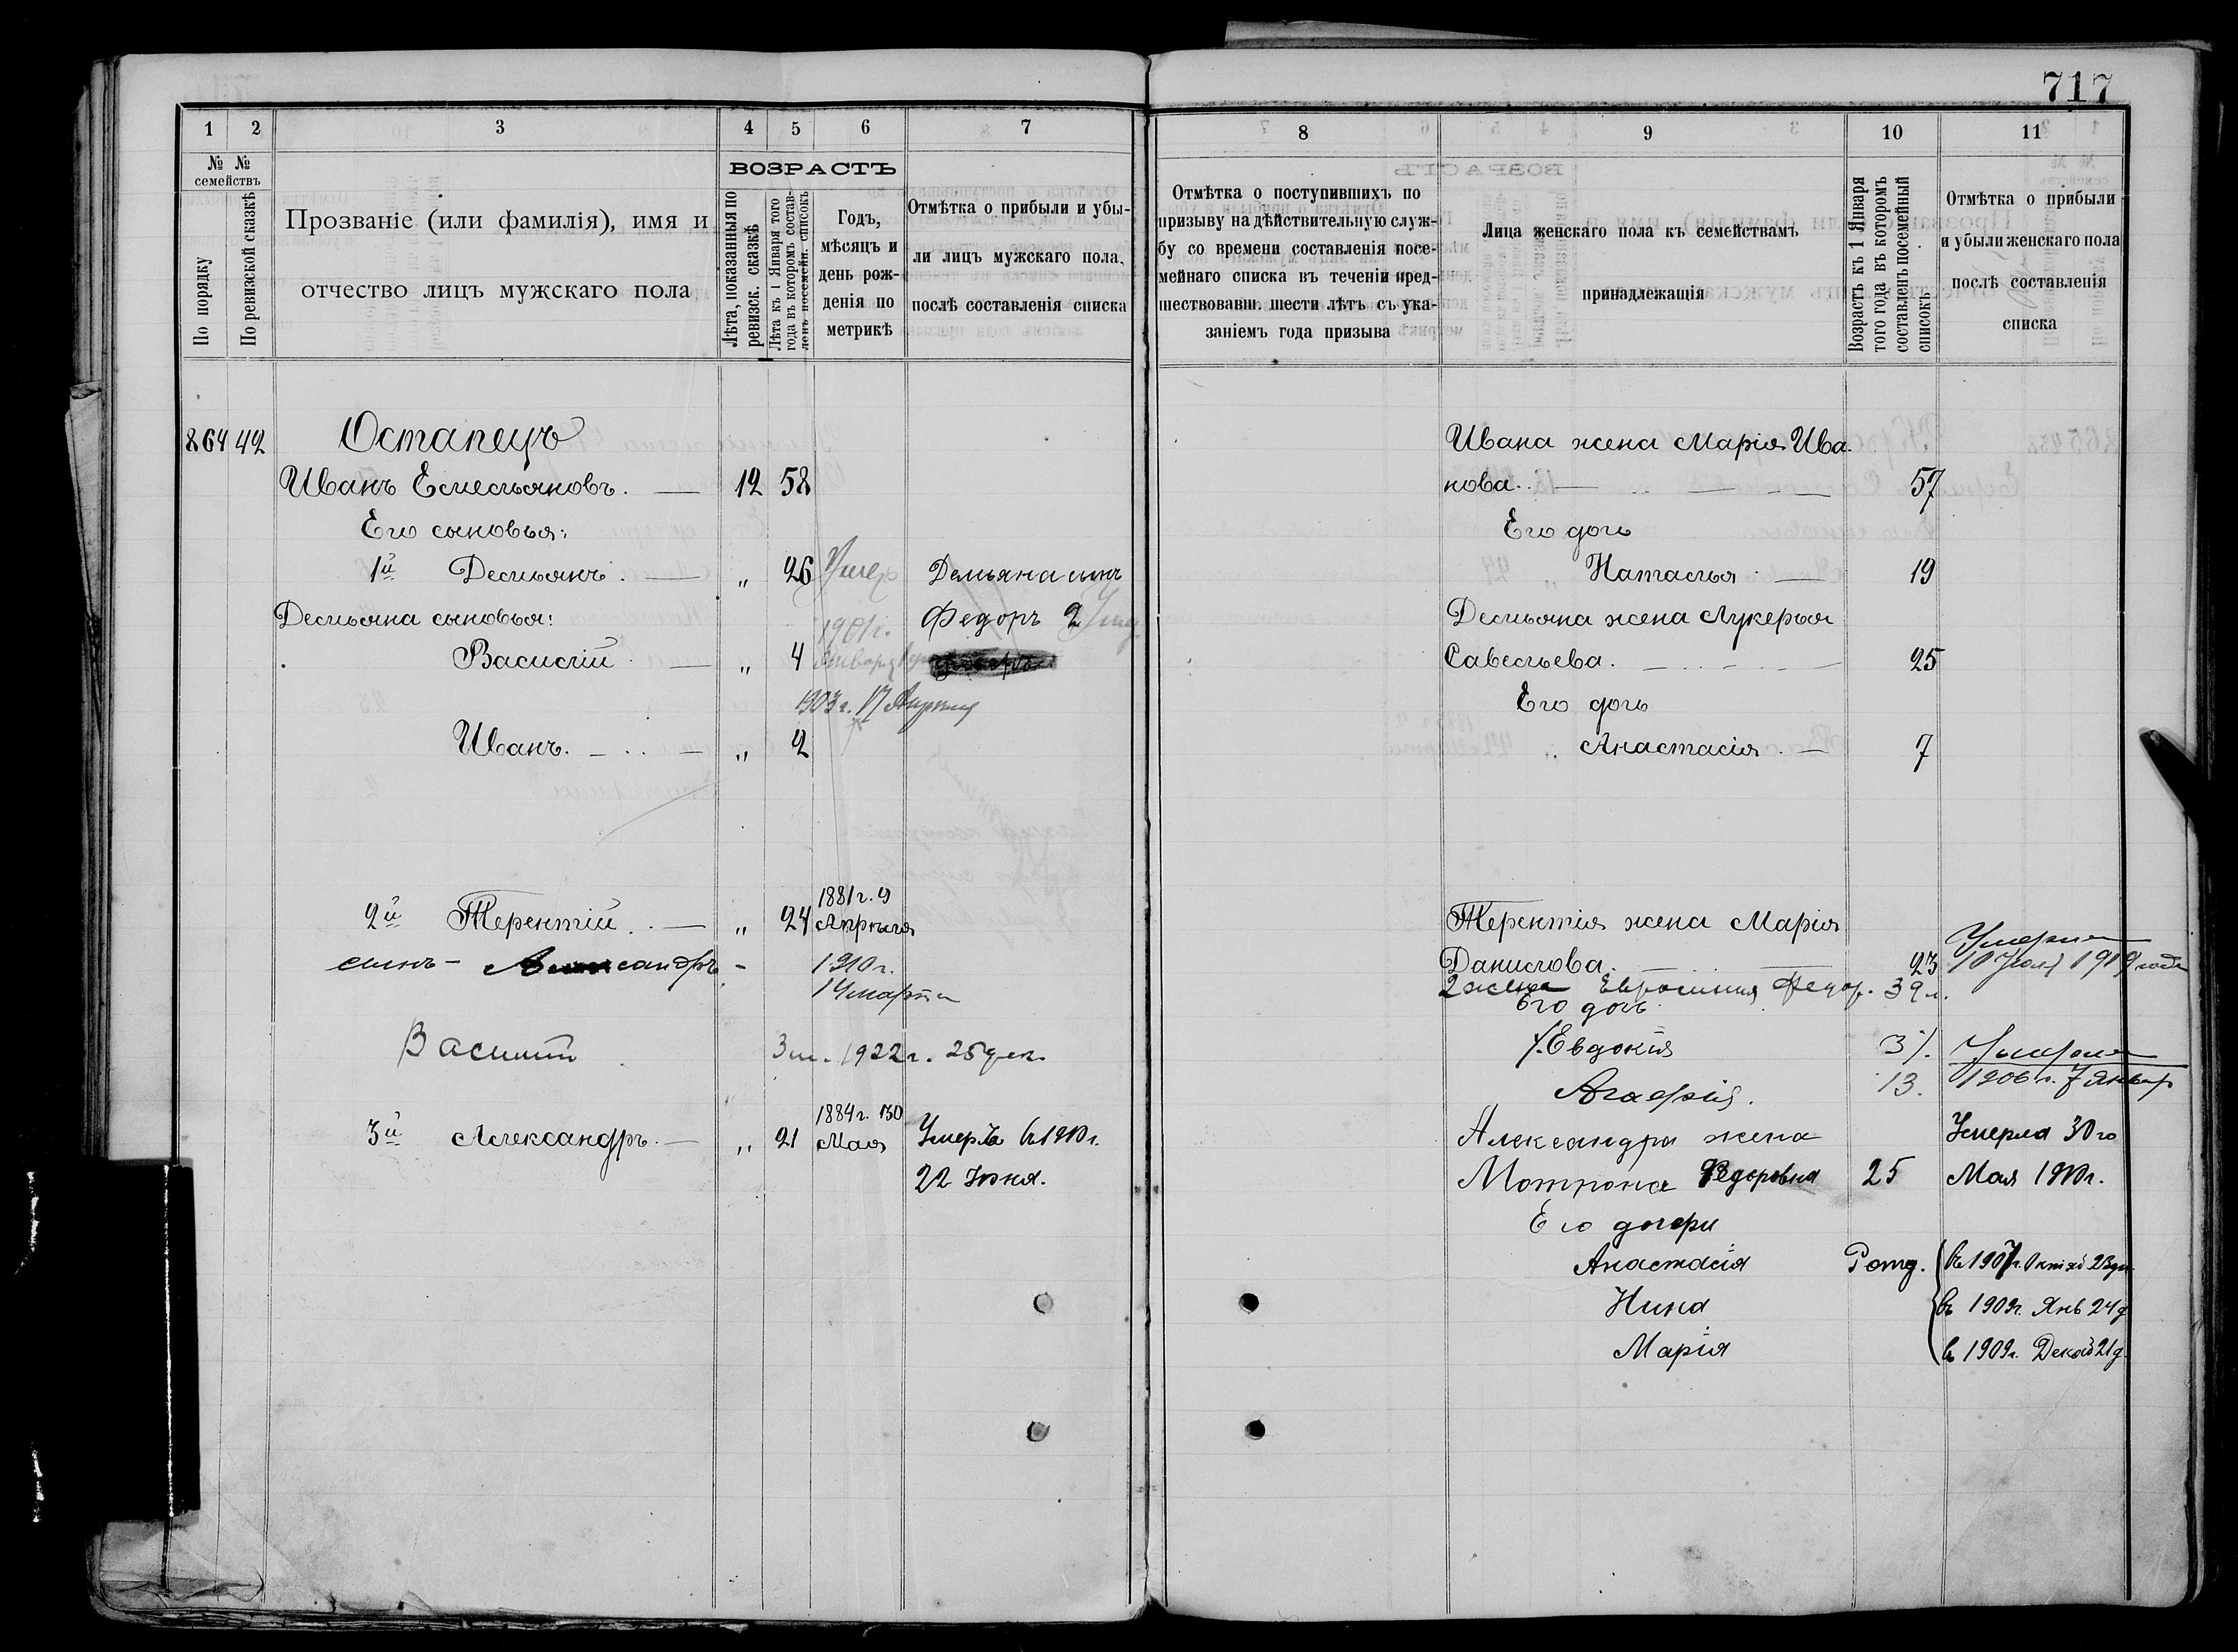 717
1 2 3 4 5 6 7
№ № семействъ
По порядку
По ревизской сказкѣ
Прозваніе (или фамилія), имя и
отчество лицъ мужскаго пола
ВОЗРАСТЪ
Лѣта, показанныя по
ревизск. сказкѣ
Лѣта къ 1 Января того
года въ которомъ состав-
ленъ посемейн. списокъ
Годъ,
мѣсяцъ и
день рож-
денія по
метрикѣ
Отмѣтка о прибыли и убы-
ли лицъ мужскаго пола,
послѣ составленія списка
864 42 Остапецъ
Иванъ Емельяновъ. 12 58
Его сыновья:
1й Демьянъ. „ 26 Умеръ Демьяна сынъ
Демьяна сыновья: 1901г. Федоръ 2
Василій „ 4 Января
1903г. 17 Апреля
Иванъ. „ 2
1881г. 9
2й Терентій. „ 24 Апрѣля
сынъ - Александръ - 1910г.
14 марта
Василій 3 м. 1922г. 25 дек.
1884г. 30
3й Александръ. „ 21 Мая Умеръ въ 1910г.
22 Іюня.
8 9 10 11
Отмѣтка о поступившихъ по
призыву на дѣйствительную служ-
бу со времени составленія посе-
мейнаго списка въ теченіи пред-
шествовавш. шести лѣтъ съ ука-
заніемъ года призыва
Лица женскаго пола къ семействамъ
принадлежащія
Возрастъ къ 1 Января
того года въ которомъ
составленъ посемейный
списокъ
Отмѣтка о прибыли
и убыли женскаго пола
послѣ составленія
списка
Ивана жена Марія Ива-
нова. 57
Его дочь
Наталья 19
Демьяна жена Лукерья
Савельева. 25
Его дочь
Анастасія. 7
Терентія жена Марія Умерла
Данилова. 23 10 1919 года
2 жена Евросиния Федор. 39 л.
Его дочь
Евдокія 3 Умерла
Агафія. 13. 1906 г. 7 Январ
Александра жена Умерла 30го
Мотрона Федоровна 25 Мая 1910г.
Его дочери
Анастасія Рожд. въ 1907г. Октяб 23 дн.
Нина въ 1909г. Янв 24 д
Марія въ 1909г. Декаб 21 д.